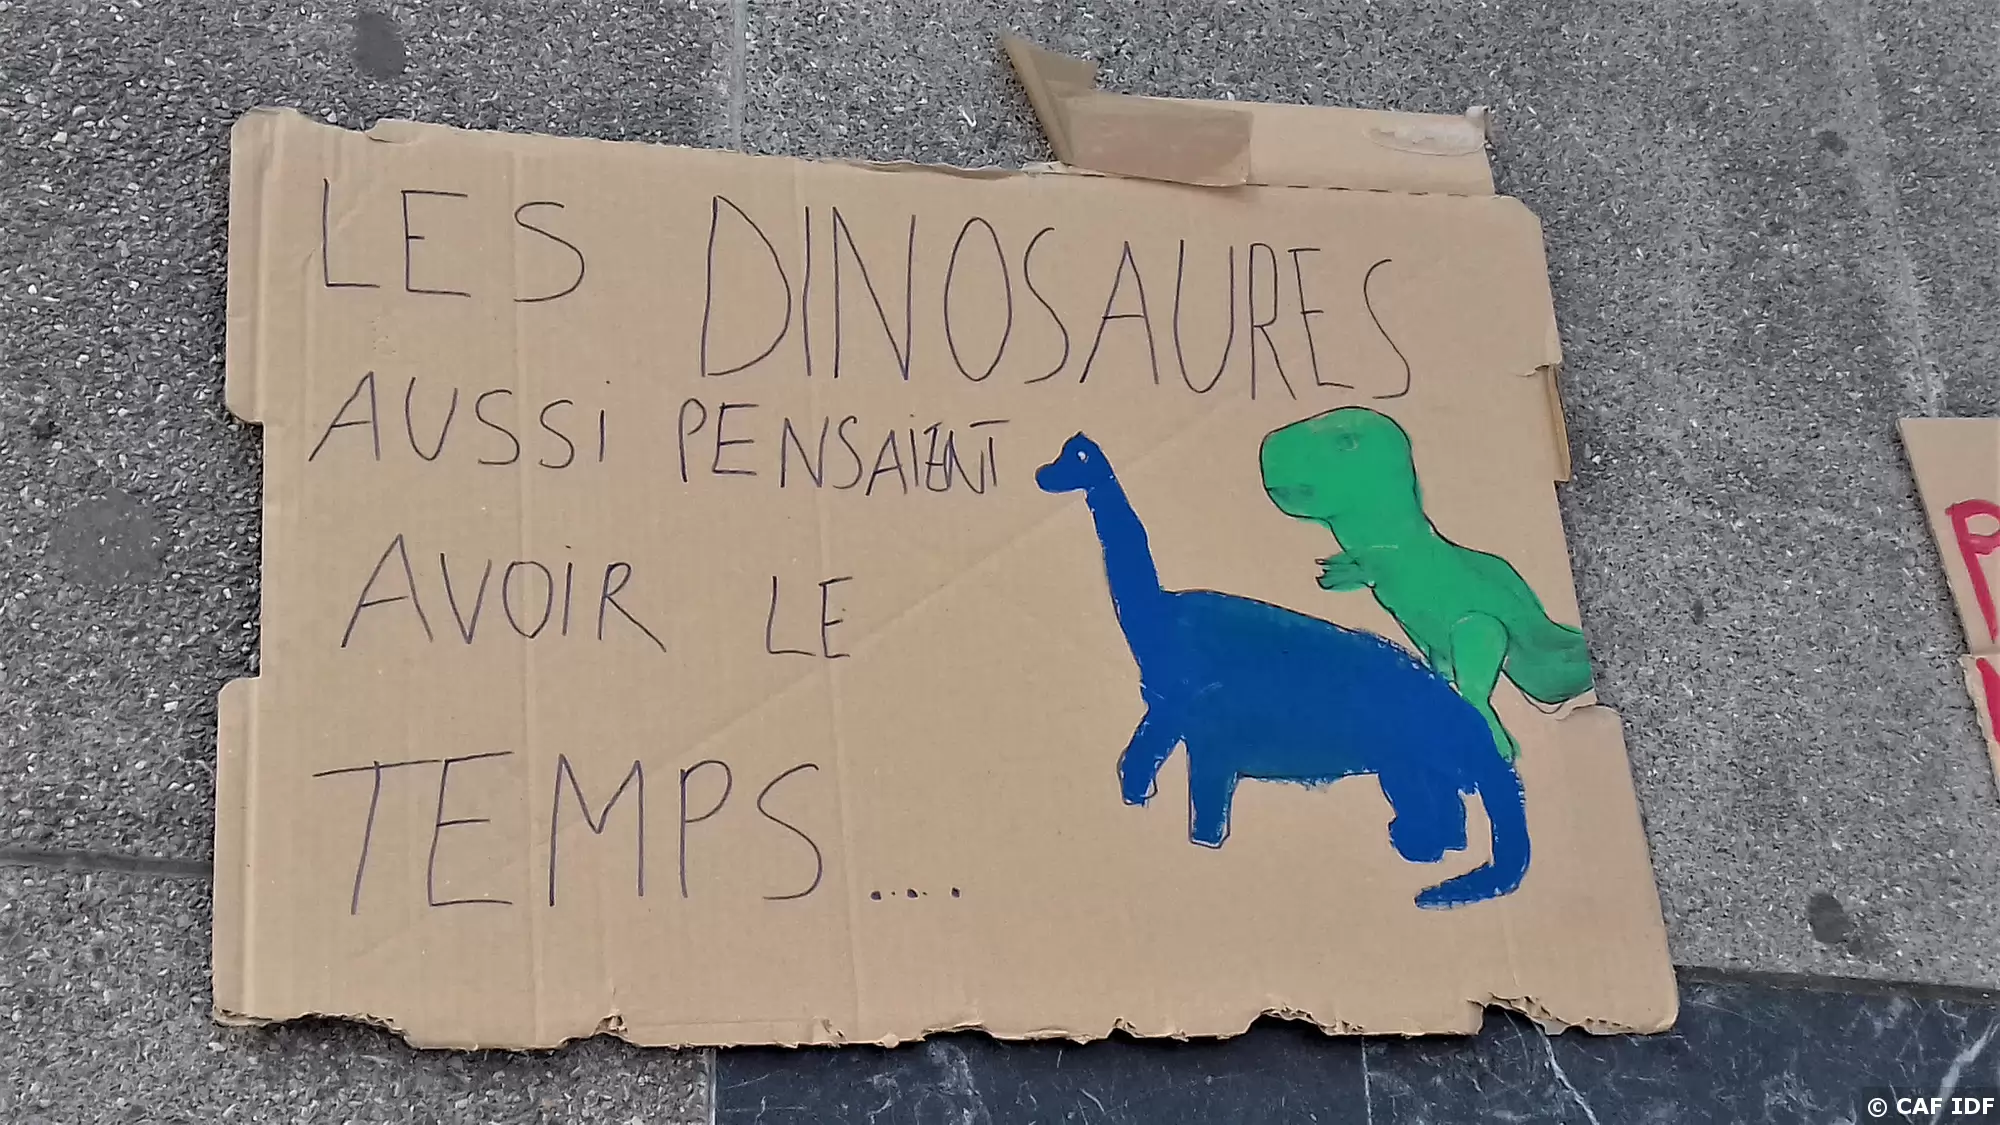 LES DINOSAURES
AUSSI PENSAIENT
AVOIR LE
TEMPS....
P
© CAF IDF